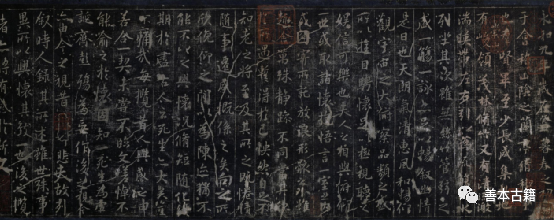 永和九年歲在癸丑暮春
于會稽山陰之蘭亭
也群賢畢至少長咸集
有崇領茂林脩竹又有清
湍暎帶左右引以
列坐其次雖無絲竹管弦之
盛一觴一詠亦足以暢敘幽情
是日也天朗氣清惠風和暢
觀宇宙之大俯察品類之盛
所以遊目騁懷足以極視聽之
娛信可樂也夫人之相與俯仰
一世或取諸懷抱悟言一室之
或因寄所託放浪形骸之外雖
趣舍萬殊靜躁不同當其
於所遇得於己怏然自足不
知老之將至及其所之既惓情
隨事遷感慨係之矣向之
欣俛仰之閒以為陳迹猶不
能不以之興懷況脩短隨化
期於盡古人云死生亦大矣豈
不痛哉每攬昔人興感之由
若合一契未嘗不臨文嗟悼不
能喻之於懷固知一死生為虛
誕齊彭殤為妄作後之
亦由今之視昔悲夫故列
敘時人錄其所述雖世殊事
異所以興懷其致一也後之攬
者亦將有感於斯
善本古籍